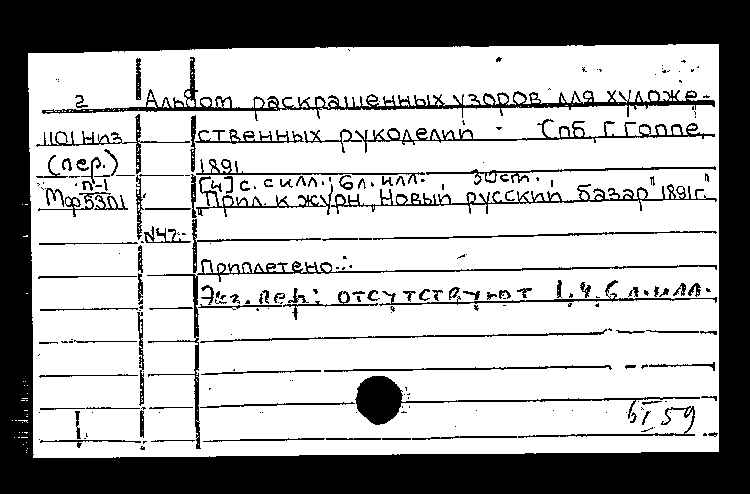 2 Альбом раскрашенных узоров для художе-
1101 низ ственных рукоделий · Спб, Г. Гоппе,
(пер.) 1891.
п-1 [4] с. с илл.; 6 л. илл. 30 cm.
Мф "Прил. к журн. "Новый русский базар" 1891г."
N47.-
Приплетено.:
Экз. пер: отсутствуют 1, 4, 6 л. илл.
59